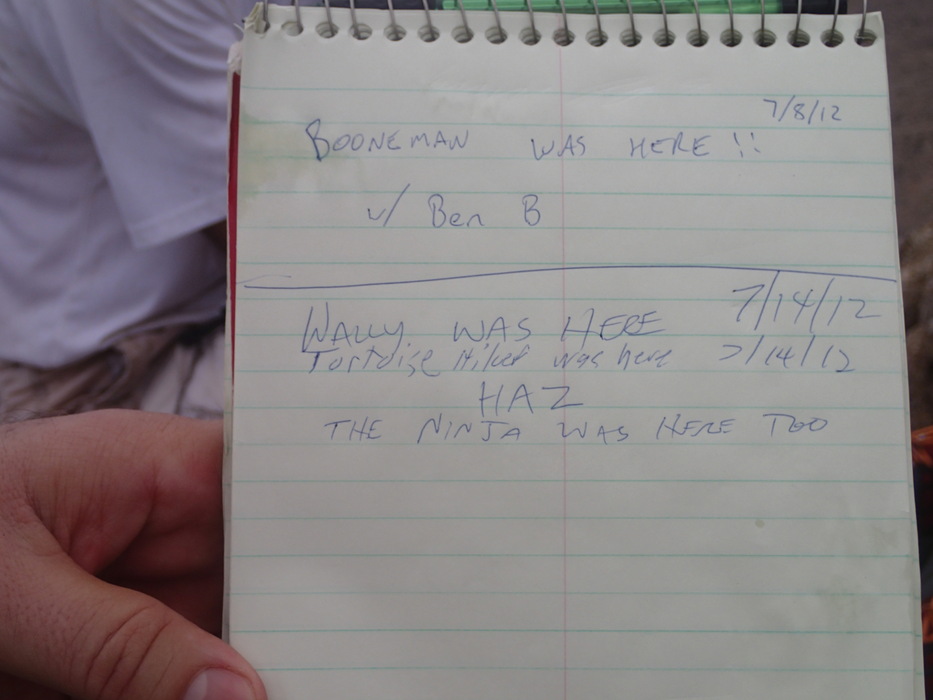 7/8/12
BOONEMAN WAS HERE !!
w/ Ben B
WALLY WAS HERE 7/14/12
Tortoise Hiker was here 7/14/12
HAZ
THE NINJA WAS HERE TOO